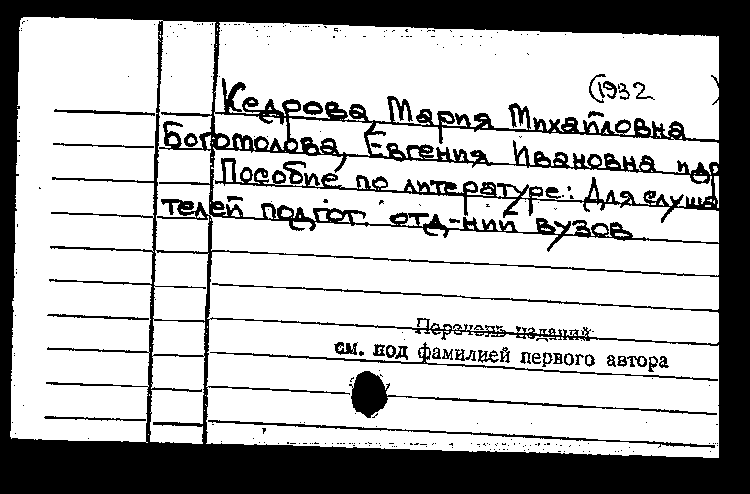 (1932 )
Кедрова, Мария Михайловна
Боготолова, Евгения Ивановна и др
Пособие по литературе: Для слуша
телей подгот. отд-ний вузов
Перечень изданий
см. под фамилией первого автора